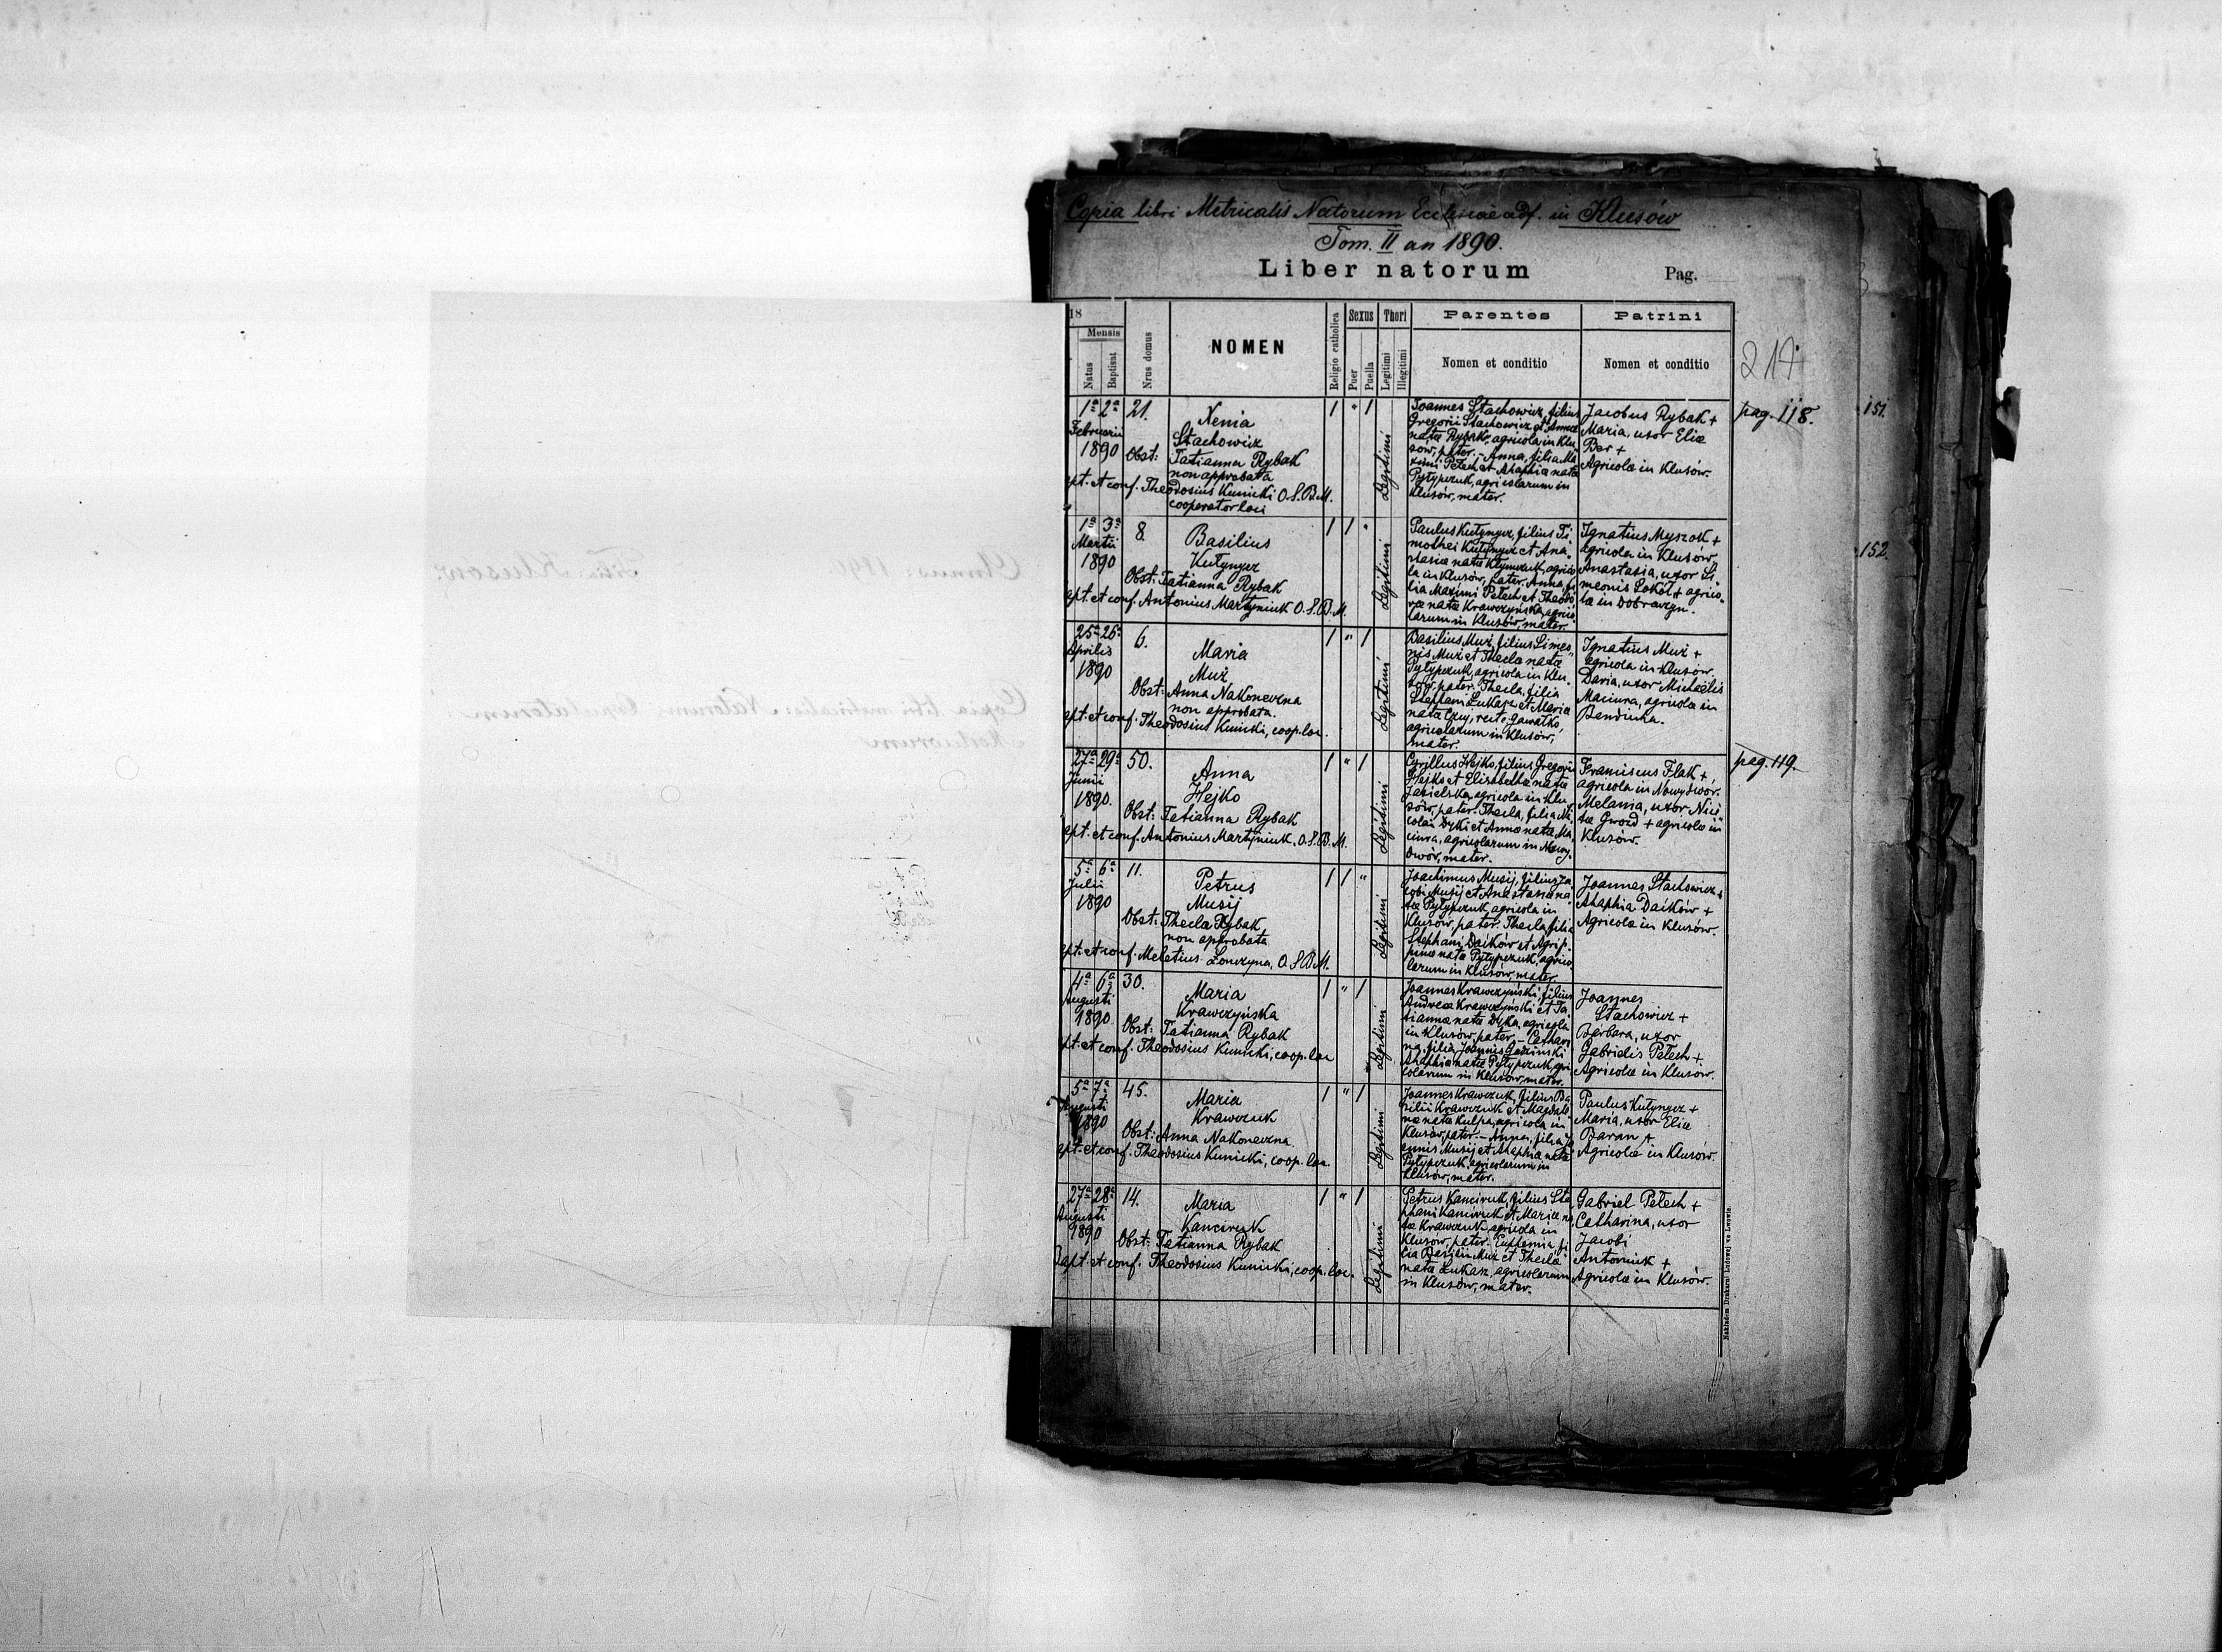 Copia libri Metricalis Natorum Ecclesiae adf. in Klusów
Tom. II an 1890.
Liber natorum Pag.
18
Mensis
Natus
Baptisat
Nrus domus
NOMEN
Religio catholica
Sexus
Puer
Puella
Thori
Legitimi
Illegitimi
Parentes
Nomen et conditio
Patrini
Nomen et conditio
214
1ª 2ª
Februarii
1890
21.
Xenia
Stachowicz
Obst: Tatianna Rybak
non approbata
pt. et conf. Theodosius Kunicki O.S.B.M.
cooperator loci
1 " 1
Legitimi
Joannes Stachowicz, filius
Gregorii Stachowicz et Annae
natae Rybak, agricola in Klu
sów, pater. - Anna, filia Ma
ximi Pełech et Ahaphiae natae
Pyłypczuk, agricolarum in
Klusów, mater.
Jacobus Rybak +
Maria, uxor Eliae
Ber +
Agricolae in Klusów.
pag. 118.
151.
1ª 3ª
Martii
1890
8.
Basilius
Kutynyez
Obst: Tatianna Rybak
pt. et conf. Antonius Martyniuk O.S.B.M.
1 1 "
Legitimi
Paulus Kutynyez, filius Ti
mothei Kutynyez et Ana
stasiae natae Klymczuk, agrico
la in Klusów, pater. Anna, fi
lia Maximi Pełech et Theodo
rae natae Krawczyńska, agrico
larum in Klusów, mater.
Ignatius Myszok +
agricola in Klusów,
Anastasia, uxor Si
meonis Sokół + agrico
lae in Dobraczyn.
152.
25ª 26ª
Aprilis
1890
6.
Maria
Muż
Obst: Anna Nakoneczna
non approbata.
pt. et conf. Theodosius Kunicki, coop. loc.
1 " 1
Legitimi
Basilius Muż, filius Simeo
nis Muż et Theclae natae
Pyłypczuk, agricola in Klu
sów, pater. Thecla, filia
Stephani Łukasz et Mariae
natae
agricolarum in Klusów,
mater.
Ignatius Muż +
agricola in Klusów,
Daria, uxor Michaëlis
Maciura, agricolae in
Benduha.
27ª 29ª
Junii
1890.
50.
Anna
Hejko
Obst: Tatianna Rybak
pt. et conf. Antonius Martyniuk, O.S.B.M.
1 " 1
Legitimi
Cyrillus Hejko, filius Gregorii
Hejko et Elisabethae natae
Jasielska, agricola in Klu
sów, pater. Thecla, filia Ni
colai Dyki et Annae natae Ma
ciura, agricolarum in Nowy
Dwór, mater.
Franciscus Flak +,
agricola in Nowydwor.
Melania, uxor Nici
tae Gwozd + agricolae in
Klusów.
pag. 119.
5ª 6ª
Julii
1890
11.
Petrus
Musij
Obst: Thecla Rybak
non approbata
pt. et conf. Meletius Łonczyna, O.S.B.M.
1 1 "
Legitimi
Joachimus Musij, filius Ja
cobi Musij et Anastasiae na
tae Pyłypczuk, agricola in
Klusów, pater. Thecla, filia
Stephani Daćków et Agrip
pinae natae Pyłypczuk, agrico
larum in Klusów, mater.
Joannes Stachowicz +
Ahaphia Daćków +
Agricolae in Klusów.
4ª 6ª
Augusti
1890
30.
Maria
Krawczyńska
Obst: Tatianna Rybak
pt. et conf. Theodosius Kunicki, coop. loc
1 " 1
Legitimi
Joannes Krawczyński, filius
Andreae Krawczyński et Ta
tiannae natae Dyka, agricola
in Klusów, pater. - Cathari
na, filia Joannis
Ahaphiae natae Pyłypczuk, agri
colarum in Klusów, mater.
Joannes
Stachowicz +
Barbara, uxor
Gabrielis Pełech +
Agricolae in Klusów.
5ª 7ª
Augusti
1890
45.
Maria
Krawczuk
Obst: Anna Nakoneczna
pt. et conf. Theodosius Kunicki, coop. loc.
1 " 1
Legitimi
Joannes Krawczuk, filius Ba
silii Krawczuk et Magdale
nae natae Kulpa, agricola in
Klusów, pater. - Anna, filia Jo
annis Musij et Ahaphiae natae
Pyłypczuk, agricolarum in
Klusów, mater.
Paulus Kutynyez +
Maria, uxor Eliae
Baran +
Agricolae in Klusów.
27ª 28ª
Augusti
1890
14.
Maria
Kanciruk
Obst: Tatianna Rybak
Bapt. et conf. Theodosius Kunicki, coop. loc.
1 " 1
Legitimi
Petrus Kanciruk, filius Ste
phani Kanciruk et Mariae na
tae Krawczuk, agricola in
Klusów, pater. Euphemia, fi
lia Basilii Muż et Theclae
natae Łukasz, agricolarum
in Klusów, mater.
Gabriel Pełech +
Catharina, uxor
Jacobi
Antoniuk +
Agricolae in Klusów.
Nakładem Drukarni Ludowej we Lwowie.